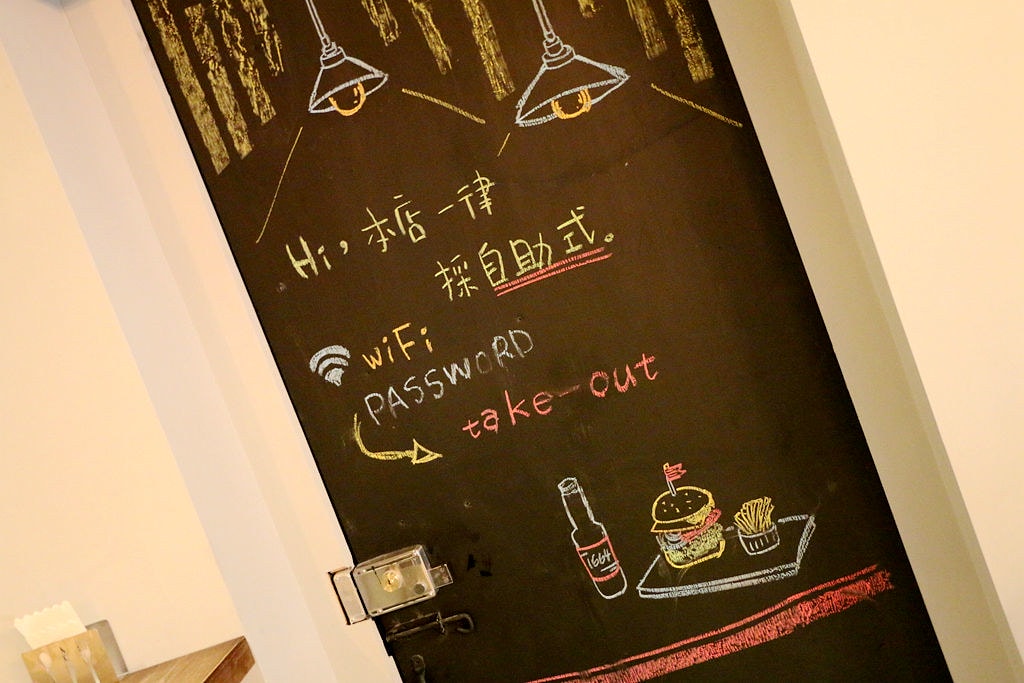 Hi, 本店一律
採自助式。
WiFi
PASSWORD
take-out
1664